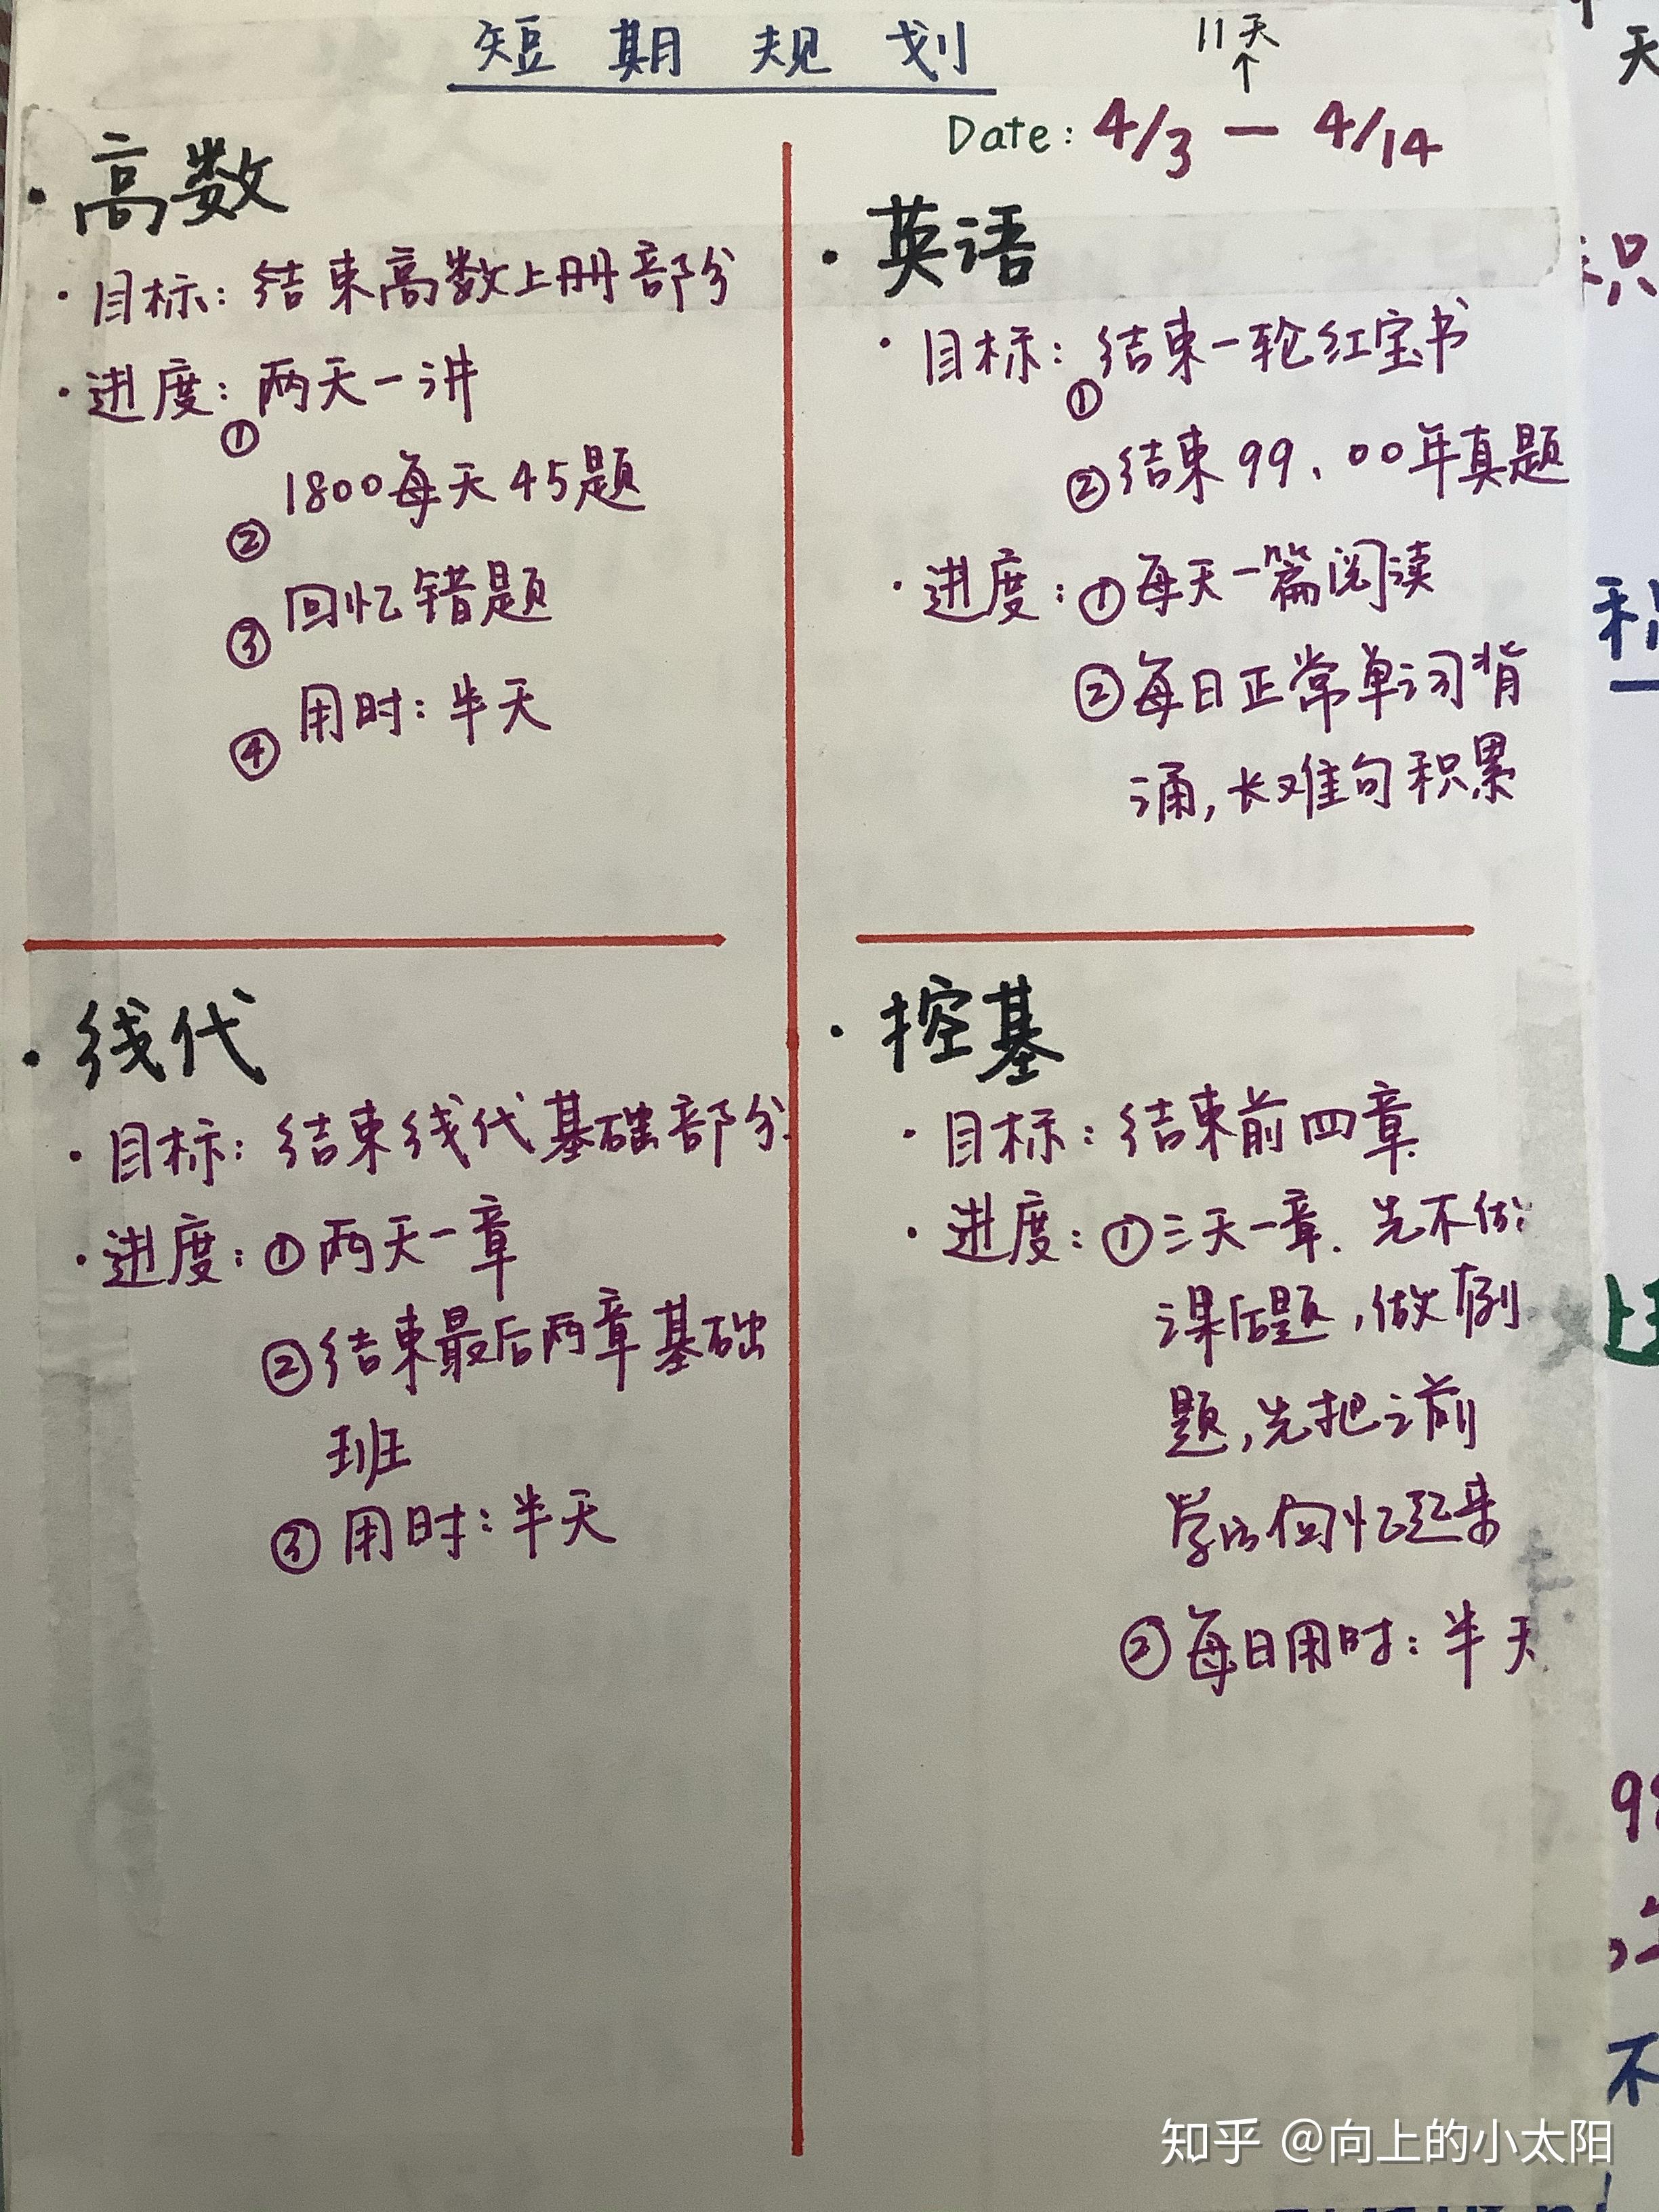 短期规划
11天
↑
Date: 4/3 — 4/14
· 高数
· 目标: 结束高数上册部分
· 进度: ① 两天一讲
② 1800每天45题
③ 回忆错题
④ 用时: 半天
· 英语
· 目标: ① 结束一轮红宝书
② 结束99、00年真题
· 进度: ① 每天一篇阅读
② 每日正常单词背
诵, 长难句积累
· 线代
· 目标: 结束线代基础部分.
· 进度: ① 两天一章
② 结束最后两章基础
班
③ 用时: 半天
· 控基
· 目标: 结束前四章.
· 进度: ① 三天一章. 先不做
课后题, 做例
题, 先把之前
学的回忆起来
② 每日用时: 半天
天
积
98
不
知乎 @向上的小太阳